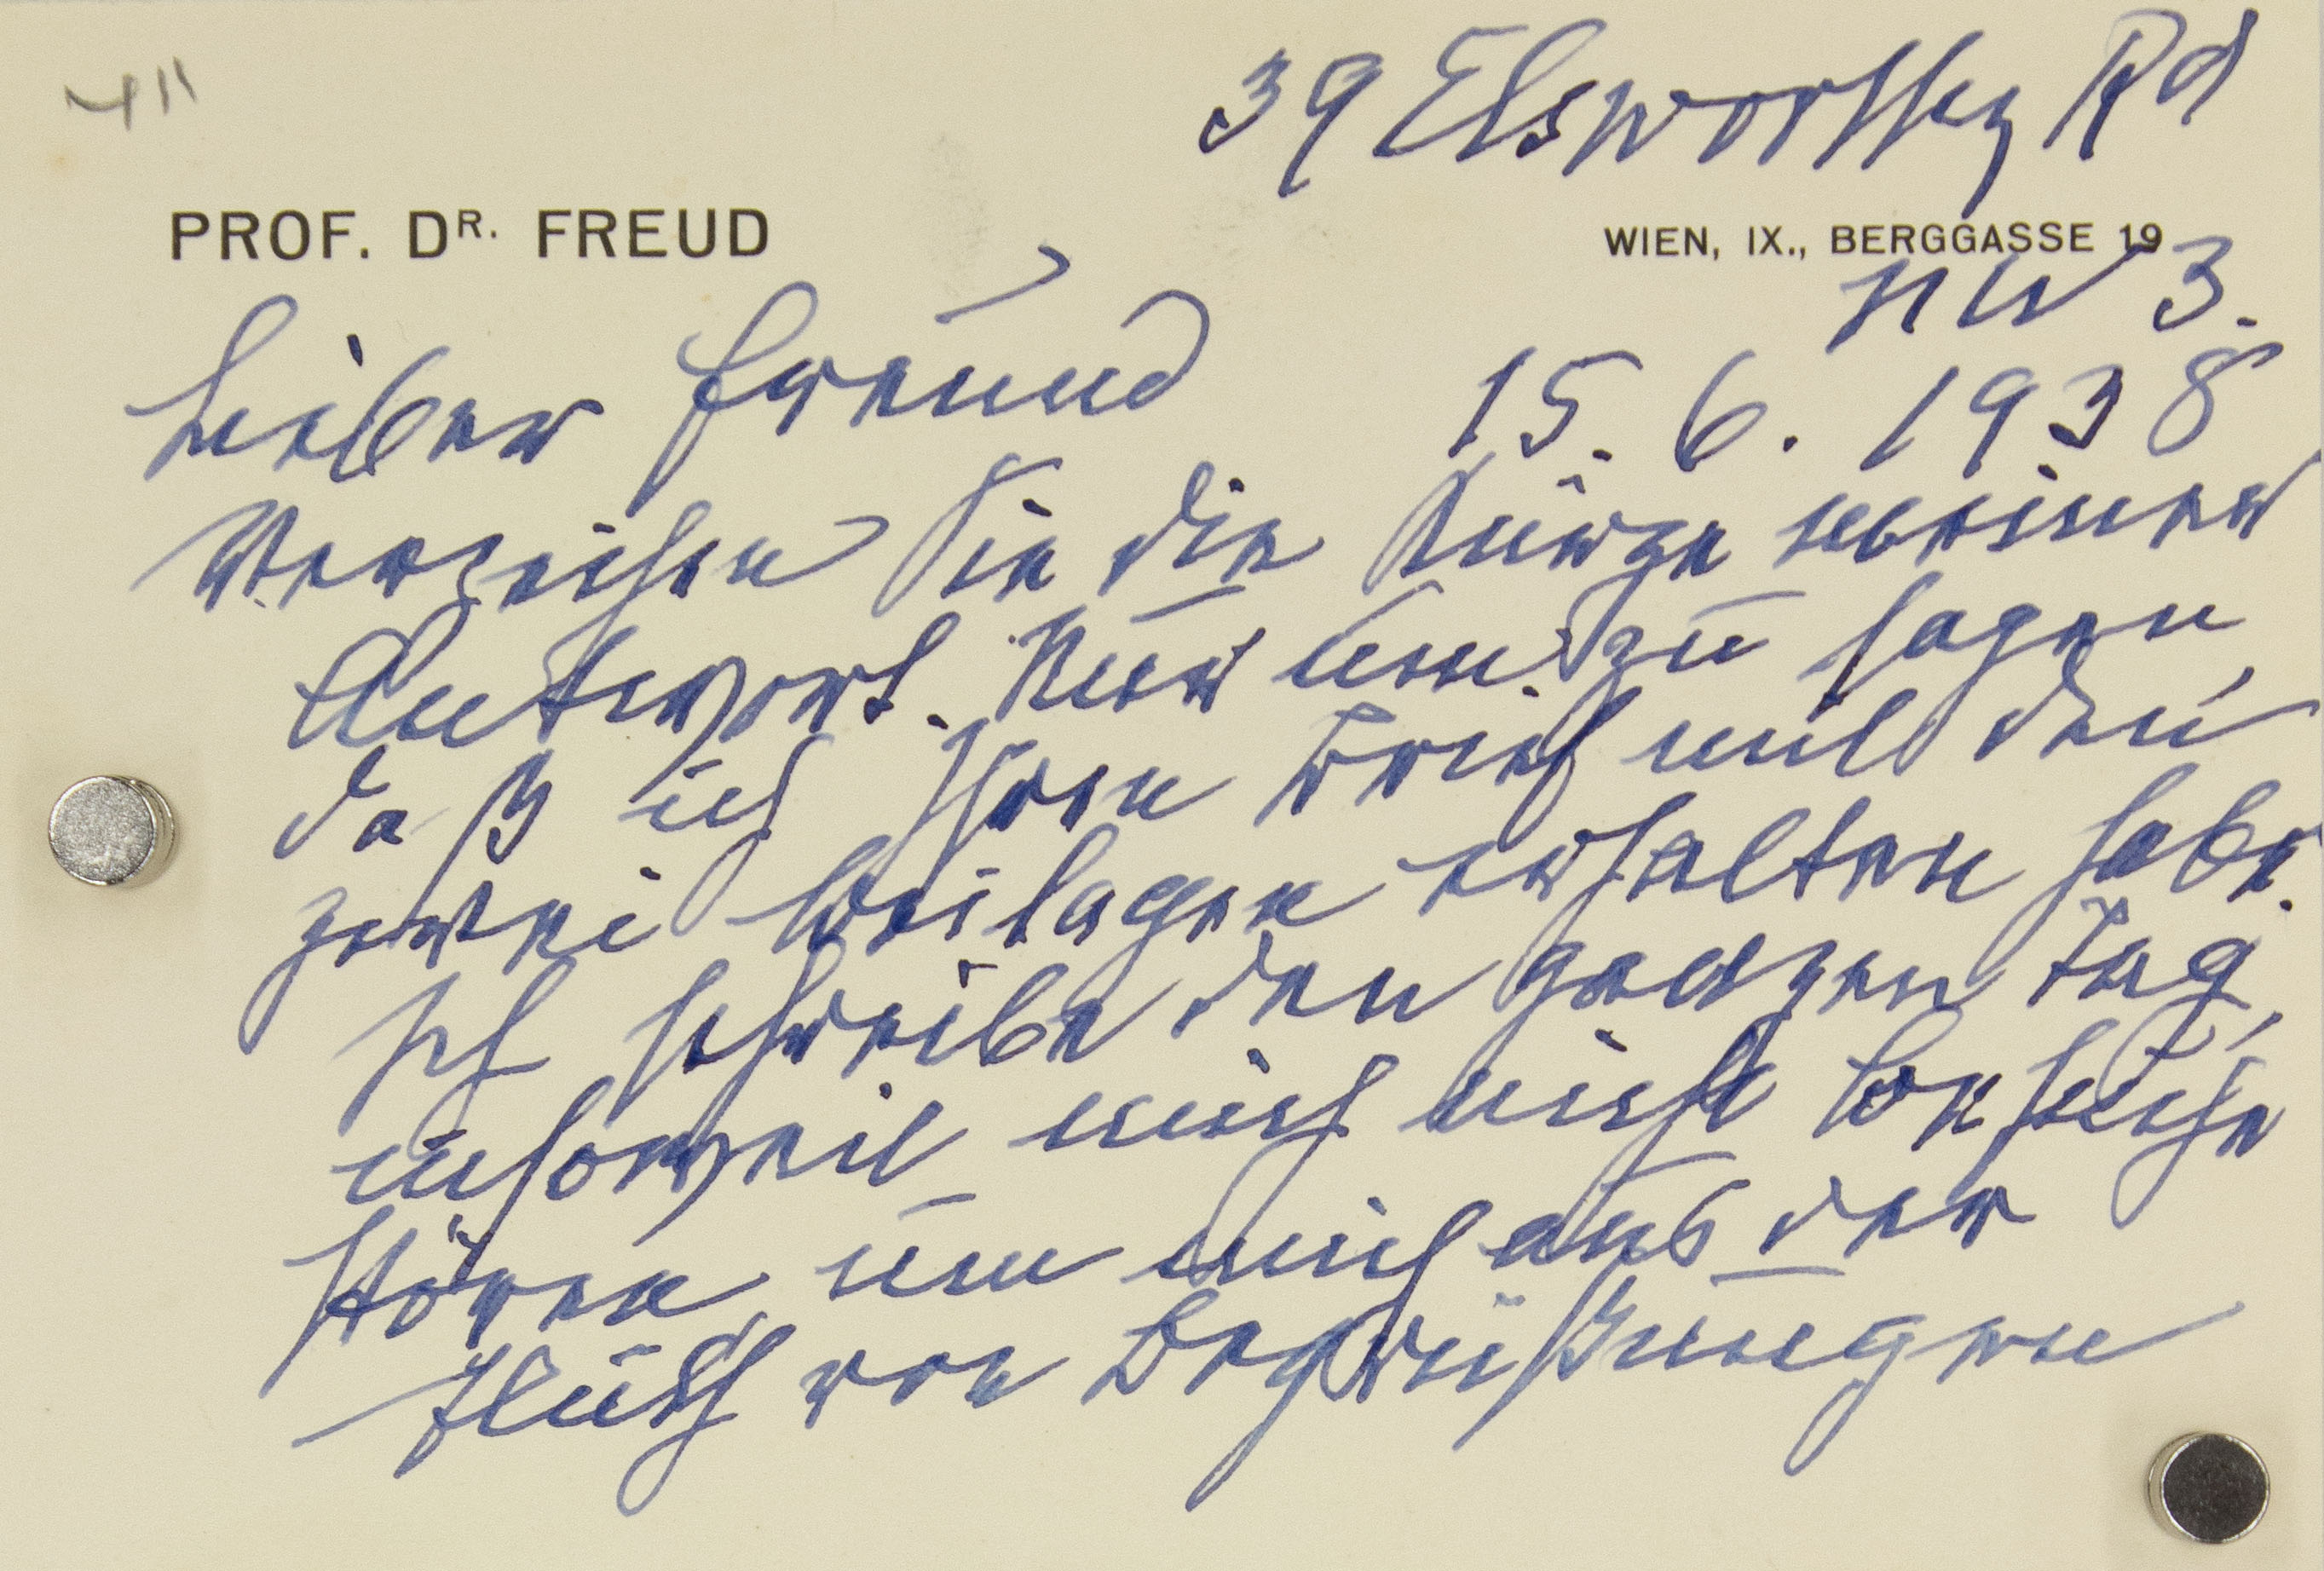 39 Elsworthy Rd
PROF. DR. FREUD
WIEN, IX., BERGGASSE 19
NW 3.
Lieber Freund
15. 6. 1938
Verzeihen Sie die Kürze meiner
Antwort. Nur um zu sagen,
daß ich Ihren Brief mit den
zwei Beilagen erhalten habe.
Ich schreibe den ganzen Tag,
insoweit mich nicht Besuche
stören, um mich aus der
Flut von Begrüßungen